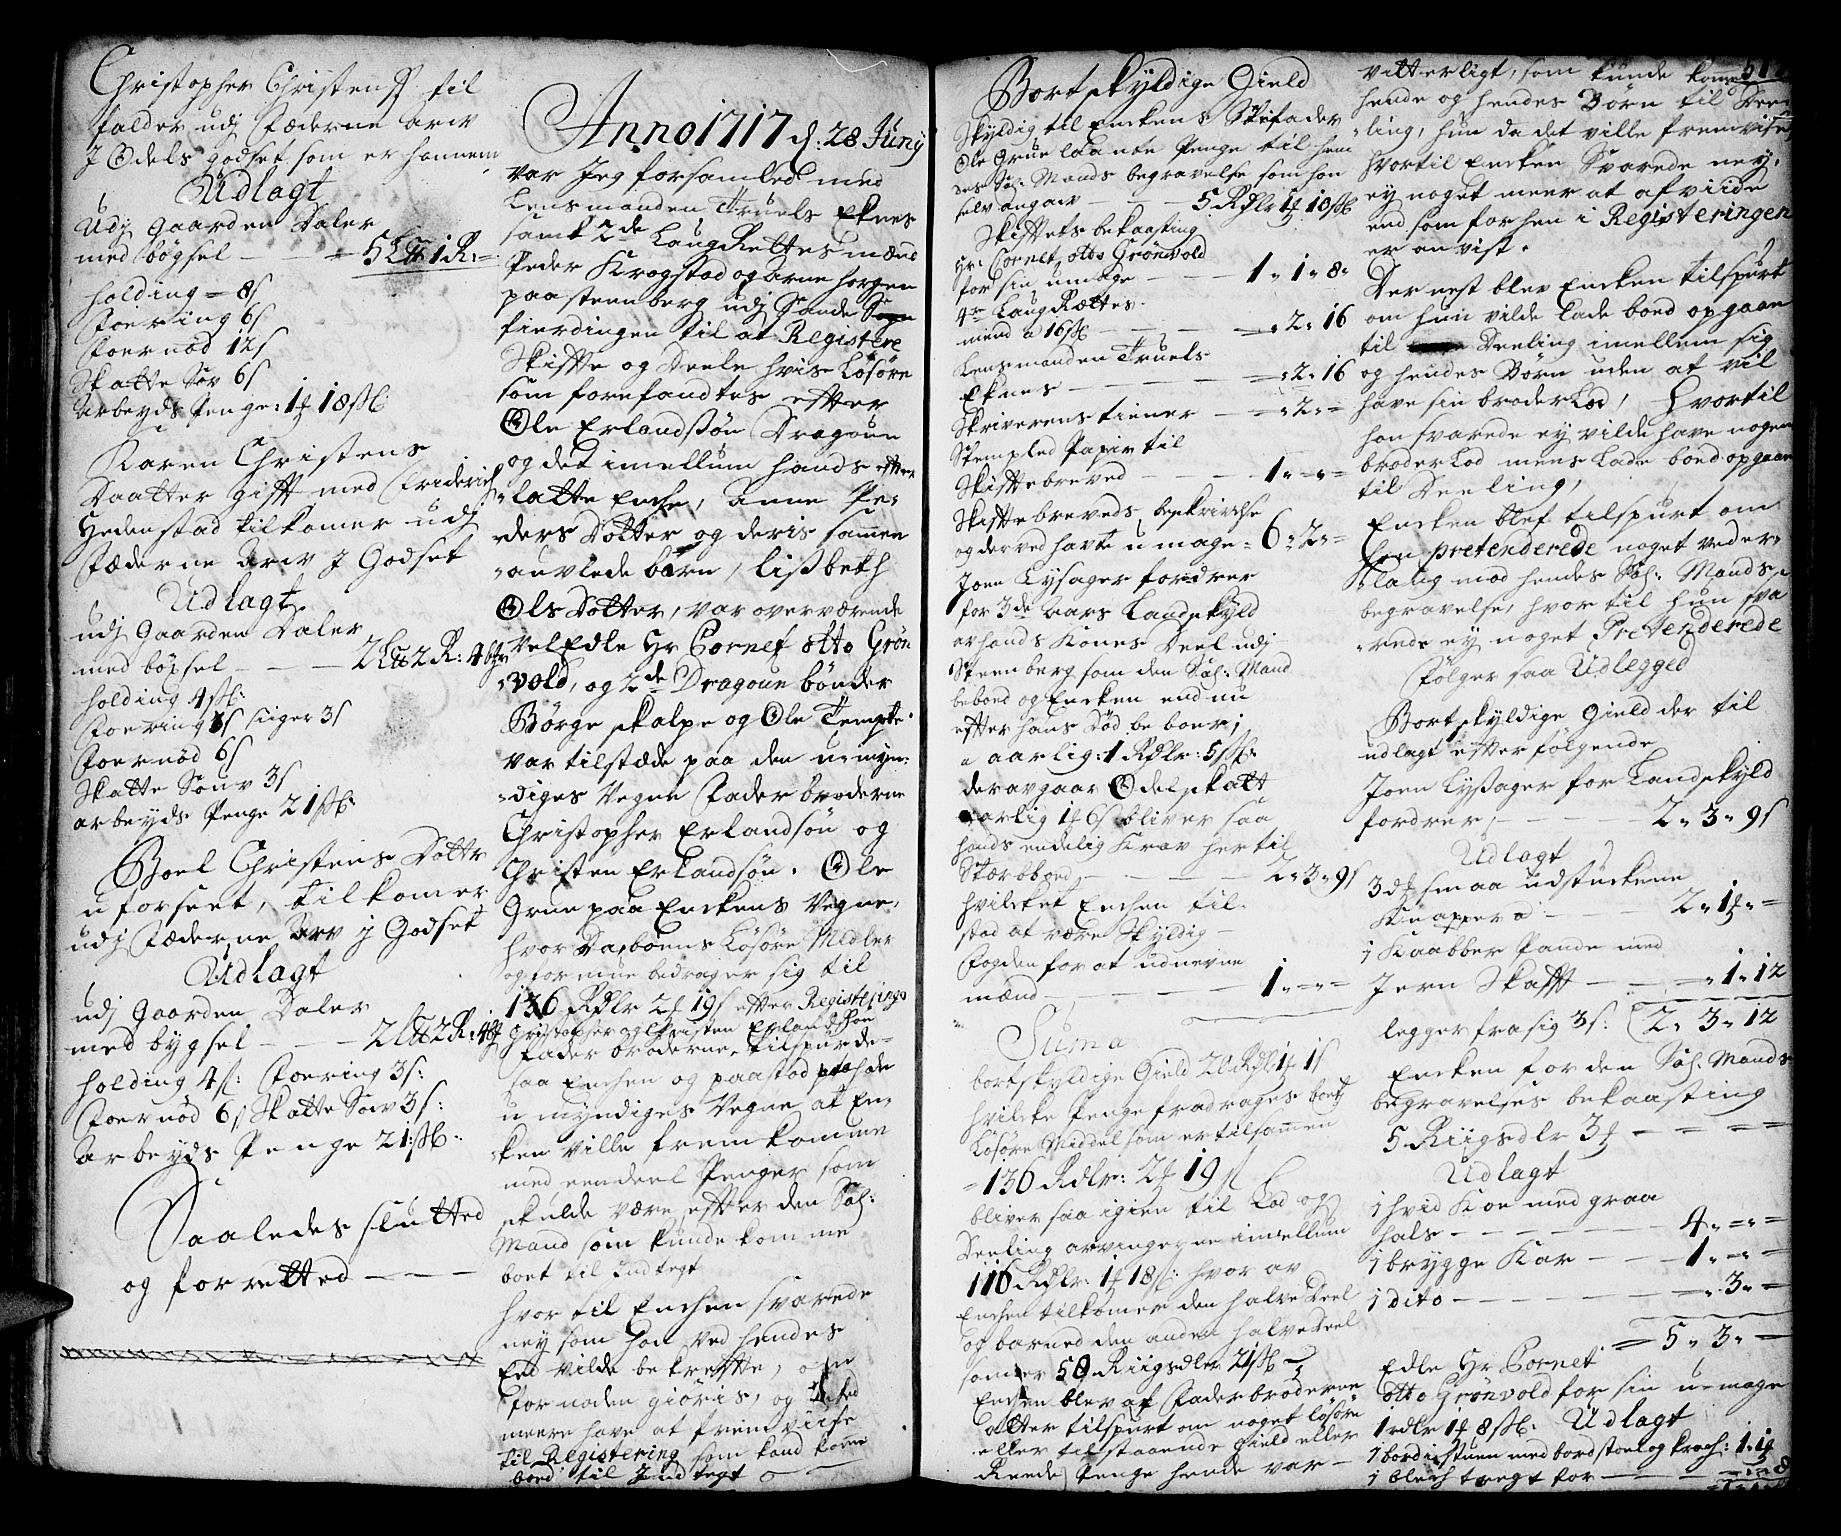 Christopher Christens S til
falder udj Fæderne arv
J Odels godset som er hannem
Udlagt
udj gaarden Daler
med bögsel — — — 5 L℔ 1 R: =
holding — 8 s
foering 6 s
foernöd 12 s
Skatte Sov 6 s
arbeyds Penge: 1 f 18 sk:
Karen Christens
Daatter gifft med Friderich
Hedenstad tilkomer udj
Fæderne Arv J Godset
Udlagt
udj Gaarden Daler
med böxsel — — — 2 L℔ 2 R: 4
holding 4 sk:
foering 3 s
foernöd 6 s
Skatte Souv 3 s
arbeyds Penge 21 sk:
Boel Christens Dotter
uforseet, tilkomer
udj Fæderne Arv J Godset
Udlagt
udj Gaarden Daler
med bygsel — — — 2 L℔ 2 R: 4
holding 4 s: foering 3 s:
foernöd 6 s Skatte Sov 3 s:
Arbeyds Penge 21: sk:
Saaledes slutted
og forretted — — —
Anno 1717 d: 28 Juny
var Jeg forsamled med
Lensmanden Truels Eknes
samt 2de LaugRettes mænd
Peder Krogstad og Arne horgen
paa steenberg udj Sande Sogn
fierdingen til at Registere
Skiffte og Deele hvis Lösöre
som forefandtes effter
Ole Erlandssön Dragoun
og det imellum hands effter
latte Encke, Anne Pe-
ders Dotter og deris samen
auvlede barn, lissbeth
Ols Dotter, var overværende
VelEdle Hr Cornet Otto Grön
vold, og 2de Dragoun bönder
Börge skalpe og Ole Tempte
var tilstæde paa den umyn-
diges Vegne Fader bröderne
Christopher Erlandsön og
Christen Erlandsön. Ole
Grue paa Enckens Vegne,
hvor Da boens Lösöre Midler
og formue bedrager sig til
136 Rdlr 2 f 19 s effter Registerings
Christopher og Christen Erlandsön
Fader bröderne, tilspurde
saa Encken og paastod paa de
umyndiges Vegne at En-
ken ville frem komme
med een deel Penger som
skulde være effter den Sal:
Mand som kunde komme
boet til Indtegt
hvor til Encken svarede
ney som hon ved hendes
Eed vilde bekreffte, om
fornöden giöris, og
meere have at frem viise
til Registering som kand kome
boed til Indtegt
Bortskyldige Gield
Skyldig til Enckens Stiffader
Ole Grue laante Penge til hen
des Sal: Mands begravelse som hon
selv angav — — — 5 Rdlr 1 f 18 sk
Skiftets bekaasting
Hr: Cornet, otto Grönvold
for sin umage — 1 " 1 " 8 "
4re LaugRættes
mend a 16 sk — — — " 2 " 16
Lensmanden Truels
Eknes — — — " 2 " 16
Skriverens tiener — — " 2 " =
Stempled Papir til
Skiftebreved — — 1 " = " =
Skiftebreveds beskrivelse
og derved hafte umage = 6 " 2 " =
Joen Lysager fordrer
for 3de aars Landskyld
av hands Kones Deel udj
Steenberg som den Sal: Mand
beboed og Encken end nu
effter hans Död beboer;
a aarlig: 1 Rdlr: 5 sk:
der avgaar Odelskatt
aarlig 1 f 6 s bliver saa
hands endelig Krav her til
Stærboed — — — 2 " 3 " 9 s
hvilcket Encken til
stod at være Skyldig —
Fogden for at udnevne
mænd — — — 1 " = " =
Suma
bortskyldige Gield 20 Rdlr 1 f 1 s
hvilcke Penge fradrages boets
Lösöre Middel som er tilsamen
= 136 Rdlr: 2 f 19 s
bliver saa igien til Lod og
Deeling arvingerne imellum
116 Rdlr: 1 f 18 s: hvor av
Encken tilkomer den halve Deel
og barned den anden halve Deel
som er 58 Riigsdlr 21 sk
Encken blev af Faderbröderne
atter tilspurt om noget lösöre
eller tilstaaende Gield eller
Reede Penge hende var —
vitterligt, som kunde kome 517
hende og hendes Börn til Dee-
ling, hun da det ville fremvise,
hvortil Encken Svarede ney,
ey noget meer at afviide
end som forhen i Registeringen
er anvist.
Der nest blev Encken tilspurt
om hun vilde lade boed opgaae
til Deeling imellem sig
og hendes Börn uden at vil
have sin broderLod, Hvortil
hon svarede ey vilde have nogen
broderLod mens Lade boed opgaae
til Deeling,
Encken blef tilspurt om
hon pretenderede noget veder-
lang mod hendes Sal: Mands
begravelse, hvortil hun sva
rede ey noget Pretenderede
Fölger saa Udlegged
Bortskyldige Gield der til
udlagt effterfölgende
Joen Lyssager for Landskyld
fordrer; — — — 2 " 3 " 9 s
Udlagt
3de smaa udstuckene
— — — 2 " 1 f " =
1 Kaabber Pande med
Jern Skafft — — — " 1 " 12
legger fra sig 3 s: 2 " 3 " 12
Encken for den Sal: Mands
begravelses bekaasting
5 Riigsdlr 3 f — = — = =
Udlagt
1 hvid Koe med graa
hals — — — — 4 " = " =
1 brygge Kar — — 1 " = " =
1 dito — — — — " 3 " =
= 5 " 3 " =
Edle Hr Cornet
Otto Grönvold for sin umage
1 rdlr 1 f 8 sk. Udlagt
1 bord i stuen med bordstoel og krach: 1 " 1 f
1 bleck tregt for — — — " = " 8